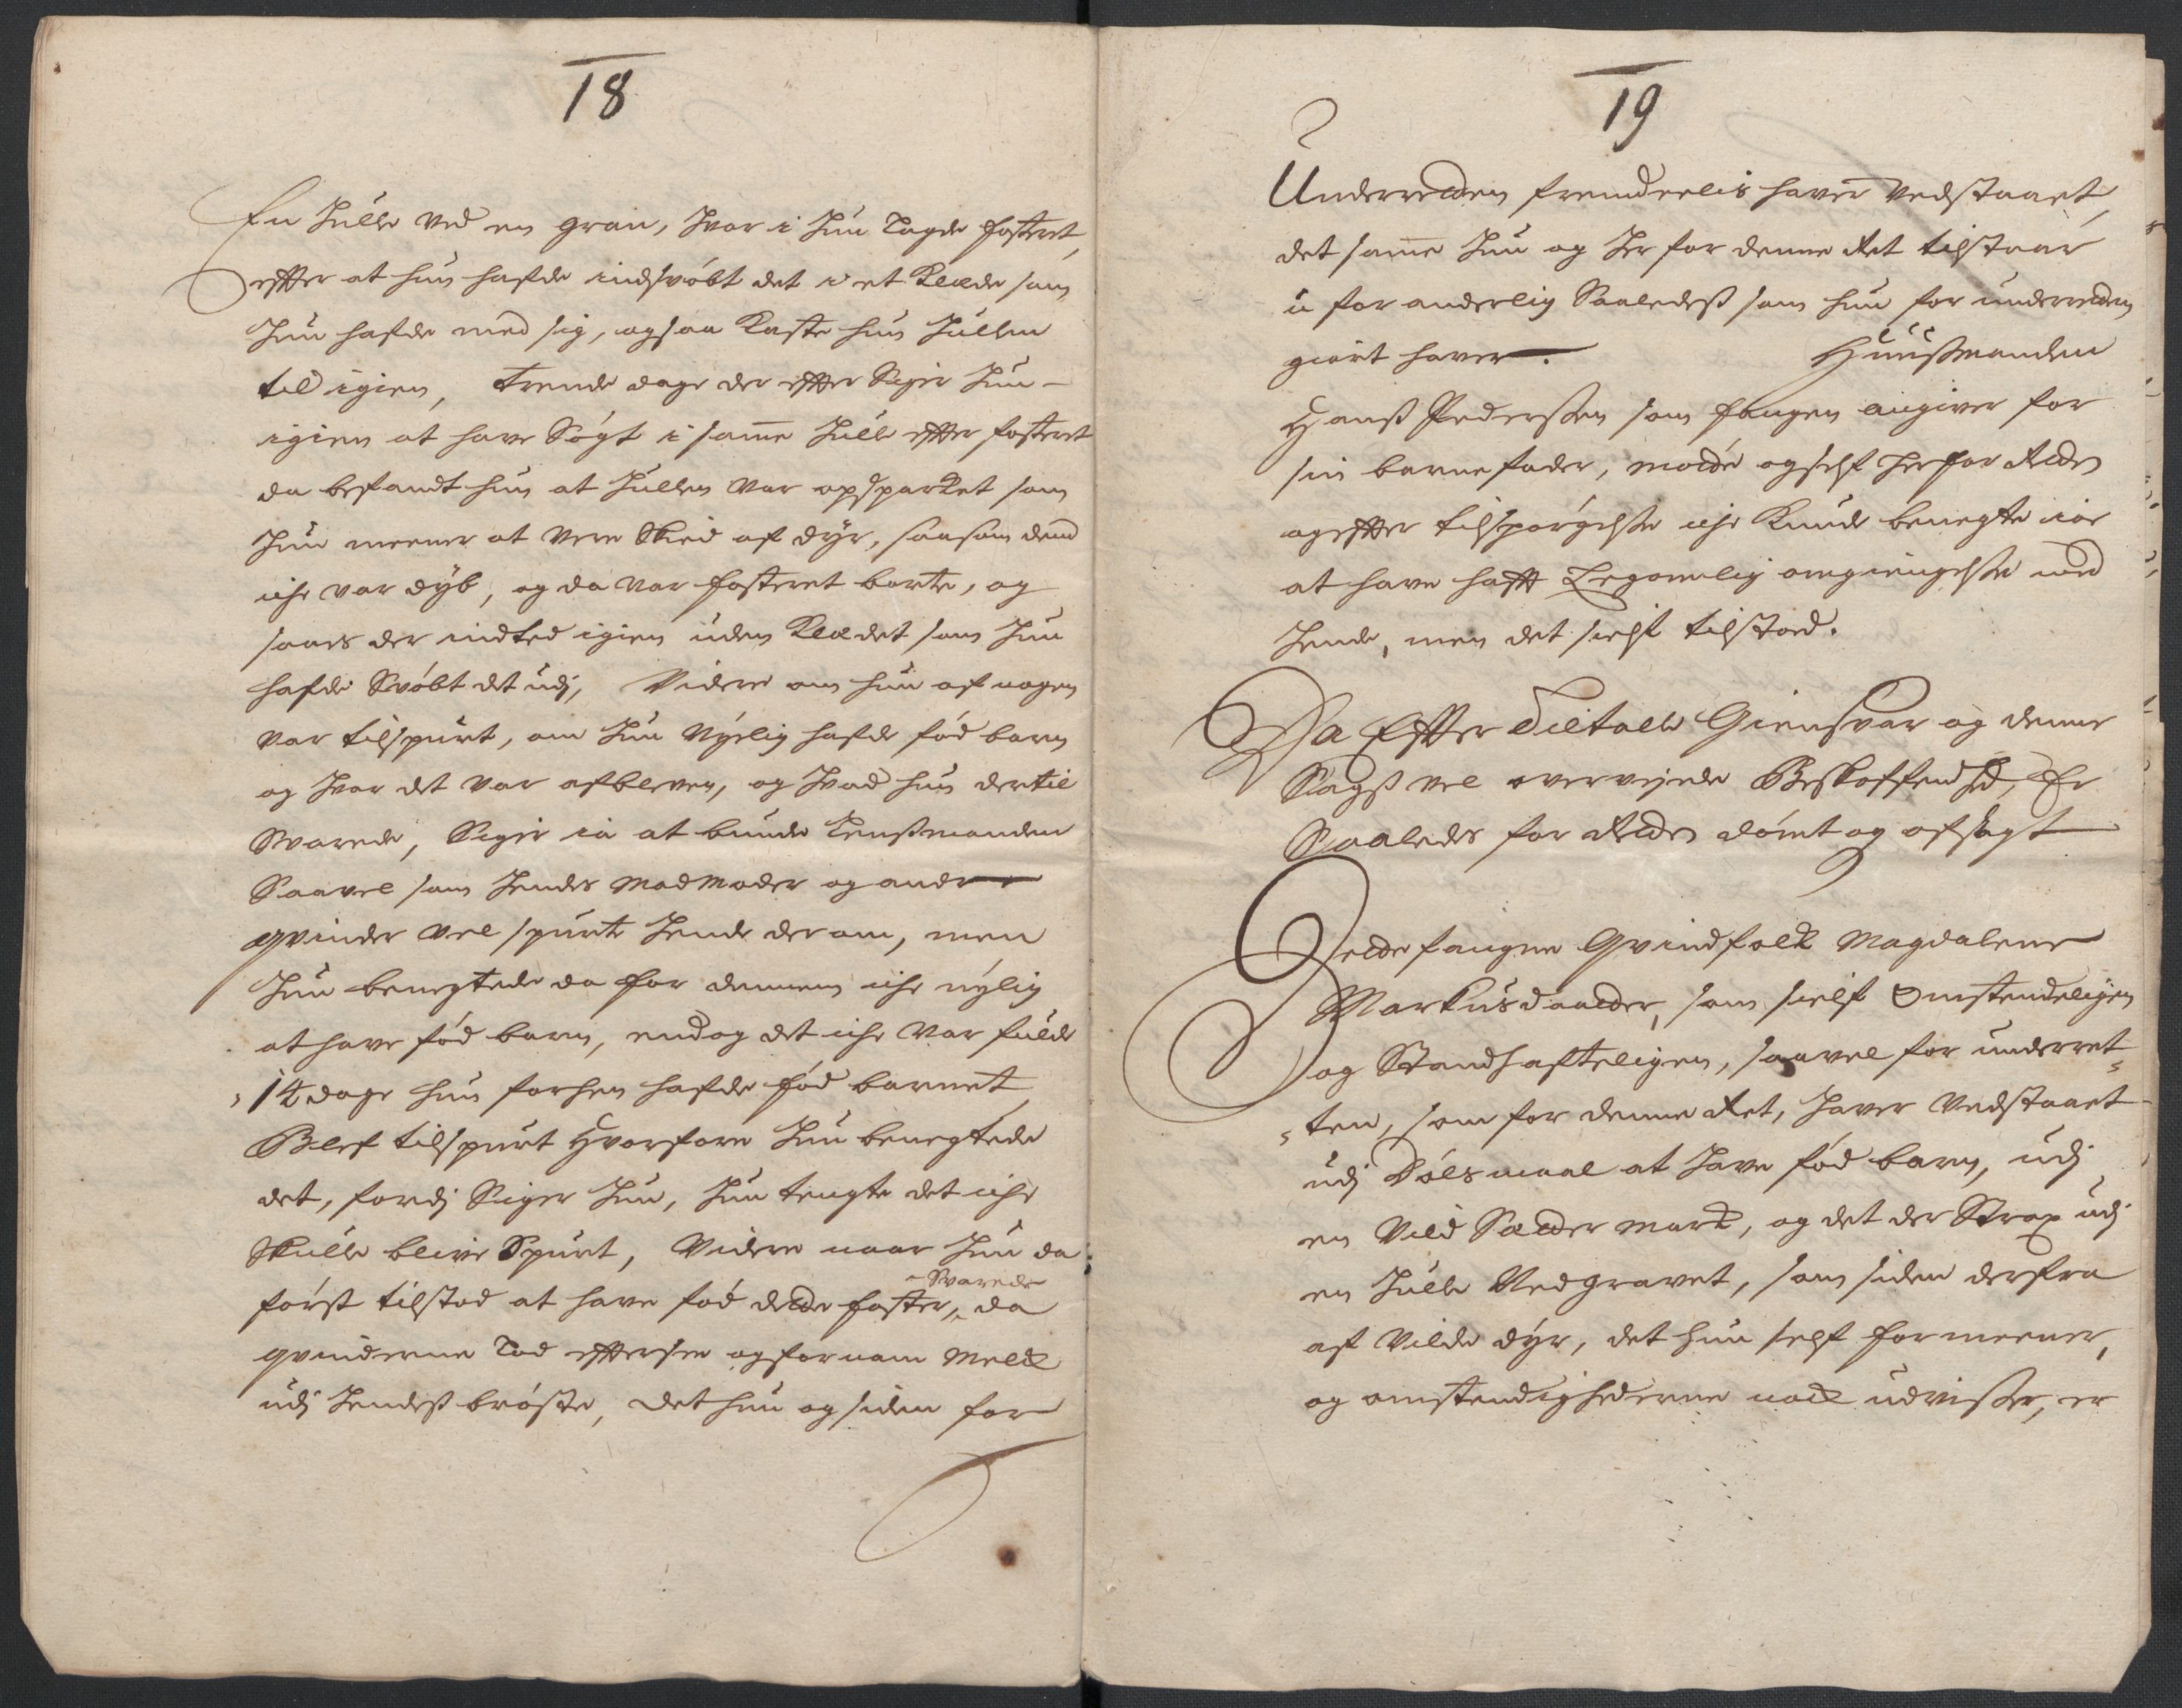 18
En Hulle ved en gran, hvor i hun Lagde fosteret,
efter at hun hafde indsvøbt det i et Klæde som
hun hafde med sig, og saa Kaste hun Hullen
til igien, trende dage der efter Siger hun
igien at have Søgt i samme Hull efter fosteret
da befandt hun at Hullen var opsparket som
hun meener at vere Skied af dyr, saasom dend
iche var dyb, og da var fosteret borte, og
saaes der indted igien uden Klædet som hun
hafde Svøbt det udj, Videre om hun af nogen
var tilspurt, om hun Nyelig hafde fød barn
og hvor det var afbleven, og hvad hun dertil
Svarede, Siger ia at bunde Lensmanden
Saavel som hendes Madmoder og andre
qvinder vel spurte hende derom, men
hun benegtede da for dennem iche nylig
at have fød barn, endog det iche var fulde
14 dage hun forhen hafde fød barnet,
Blef tilspurt Hvorfore hun benegtede
det, fordj Siger hun, hun tengte det iche
Skulle blive Spurt, Videre naar hun da
Svarede
først tilstod at have fød dette foster, da
qvinderne Lod eftersee og fornam Melck
udj hendes brøste, det hun og siden for
19
Underretten fremdeelis haver vedstaaet,
det samme hun og her for denne Ret tilstaar
u foranderlig Saaledeß som hun for underretten
giort haver. Huußmanden
Hanß Pederßen som fangen angiver for
sin barnefader, mødte og self her for Retten
og efter tilspørgelße iche Kunde benegte io
at have haft Legomelig omgiengelße med
hende, men det sielf tilstoed.
Da Efter Tiltalle Giensvar og denne
Sagß vel overvejede Beskaffenhed, Er
Saaledes for Retten dømt og afsagt
Dette fangne Qvindfolk Magdalene
Markusdaatter, som sielf Omstendeligen
og Standhafteligen, saavel for underret-
ten, som for denne Ret, haver vedstaaet
udj Dølsmaal at have fød barn, udj
en Vild Sætter mark, og det der Strax udj
en Hulle Nedgravet, som siden derfra
af Vilde dyr, det hun self formeener,
og omstendighederne nock udvißer, er